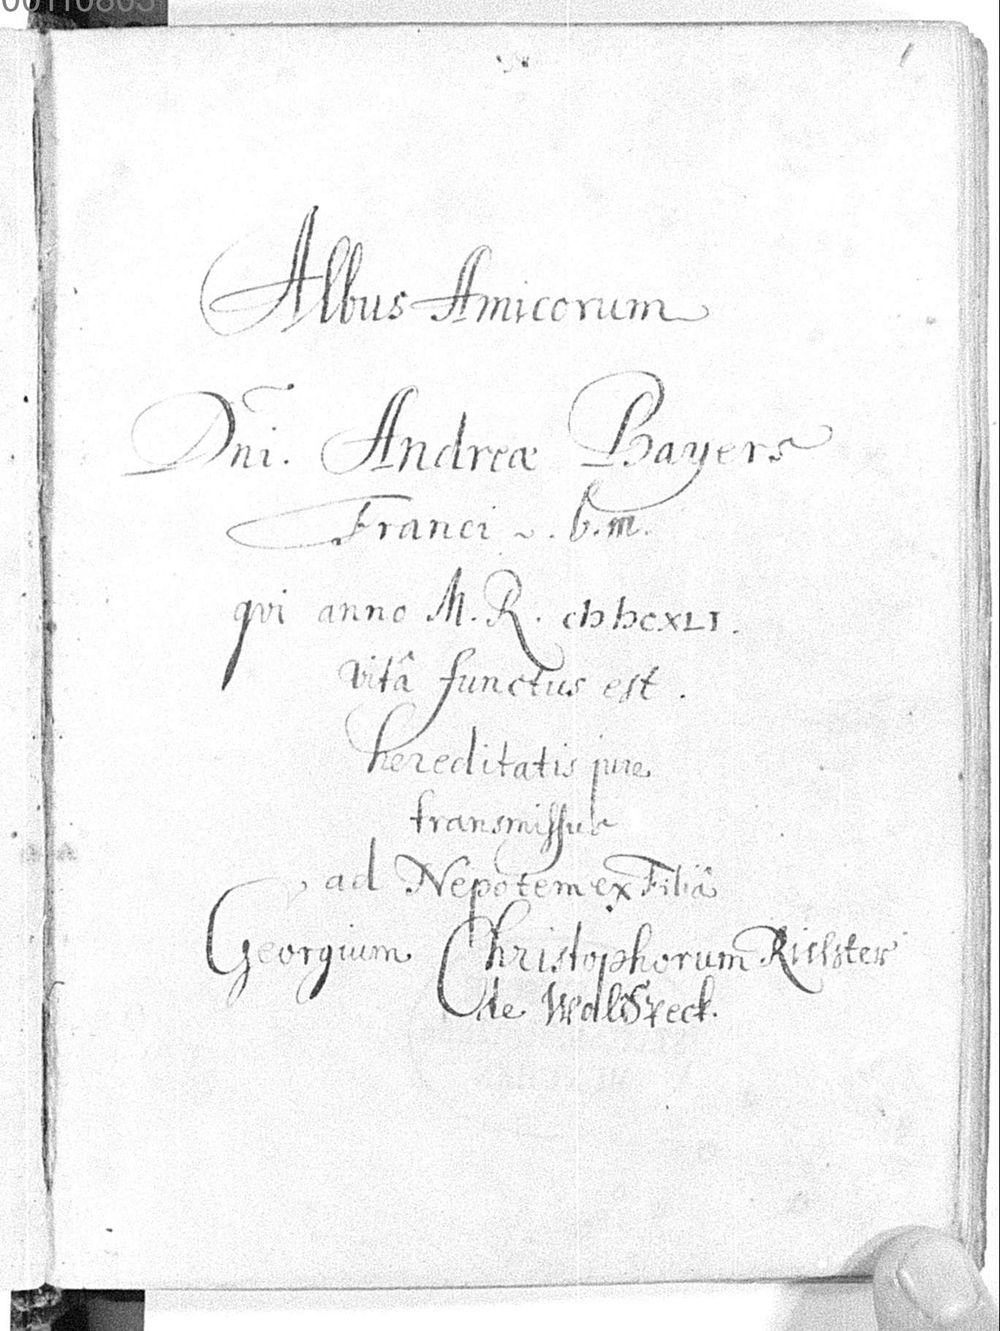 00110803
1
Albus Amicorum
Dn̄i. Andreæ Bayers
Franci ~. b.m.
qvi anno M. R. cIɔ Iɔ c XLI.
vitâ functus est.
hereditatis jure
transmissus
ad Nepotem ex Filiâ
Georgium Christophorum Richter
de Waldteck.